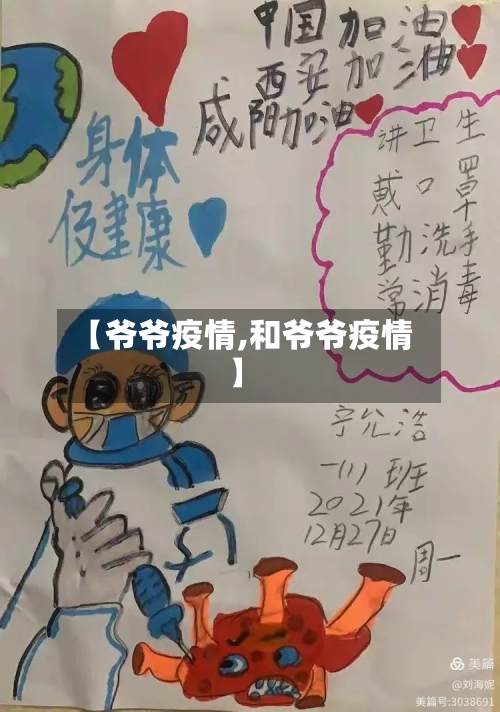 中国加油
西安加油
咸阳加油
身体
健康
讲卫生
戴口罩
勤洗手
常消毒
【爷爷疫情,和爷爷疫情
】
宁允浩
一(1)班
2021年
12月27日
周一
美篇
@刘海妮
美篇号:3038691